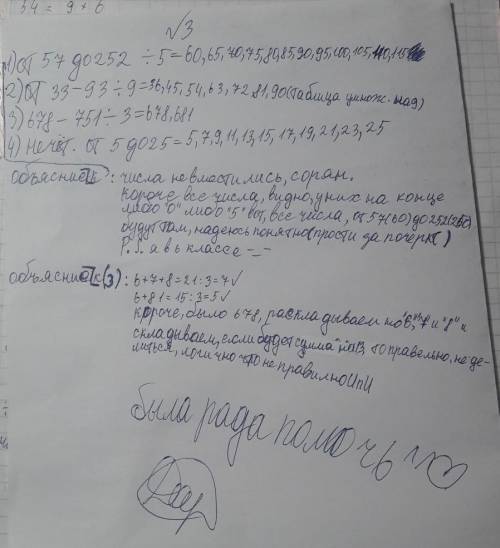 54 = 9 + 6
√3
1) от 57 до 252 ÷ 5 = 60, 65, 70, 75, 80, 85, 90, 95, 100, 105, 110, 115
2) от 33 - 93 ÷ 9 = 36, 45, 54, 63, 72 81, 90 (таблица умнож. на 9)
3) 678 - 751 ÷ 3 = 678, 681
4) Нечёт. от 5 до 25 = 5, 7, 9, 11, 13, 15, 17, 19, 21, 23, 25
объяснен : числа не вместились, сорян.
короче все числа, видно, у них на конце
либо "0" либо "5" вот, все числа, от 57(60) до 252(250)
будут там, надеюсь понятно (прости за почерк)
P.S. я в 6 классе -_-
объяснен к (3) : 6+7+8=21:3=7✓
6+81=15:3=5✓
короче, было 678, раскладываем на "6", "7" и "8" и
складываем, если будет сумма на 3, то правельно, не де-
литься, логично что не правилно ИпИ
была рада помочь ~♡